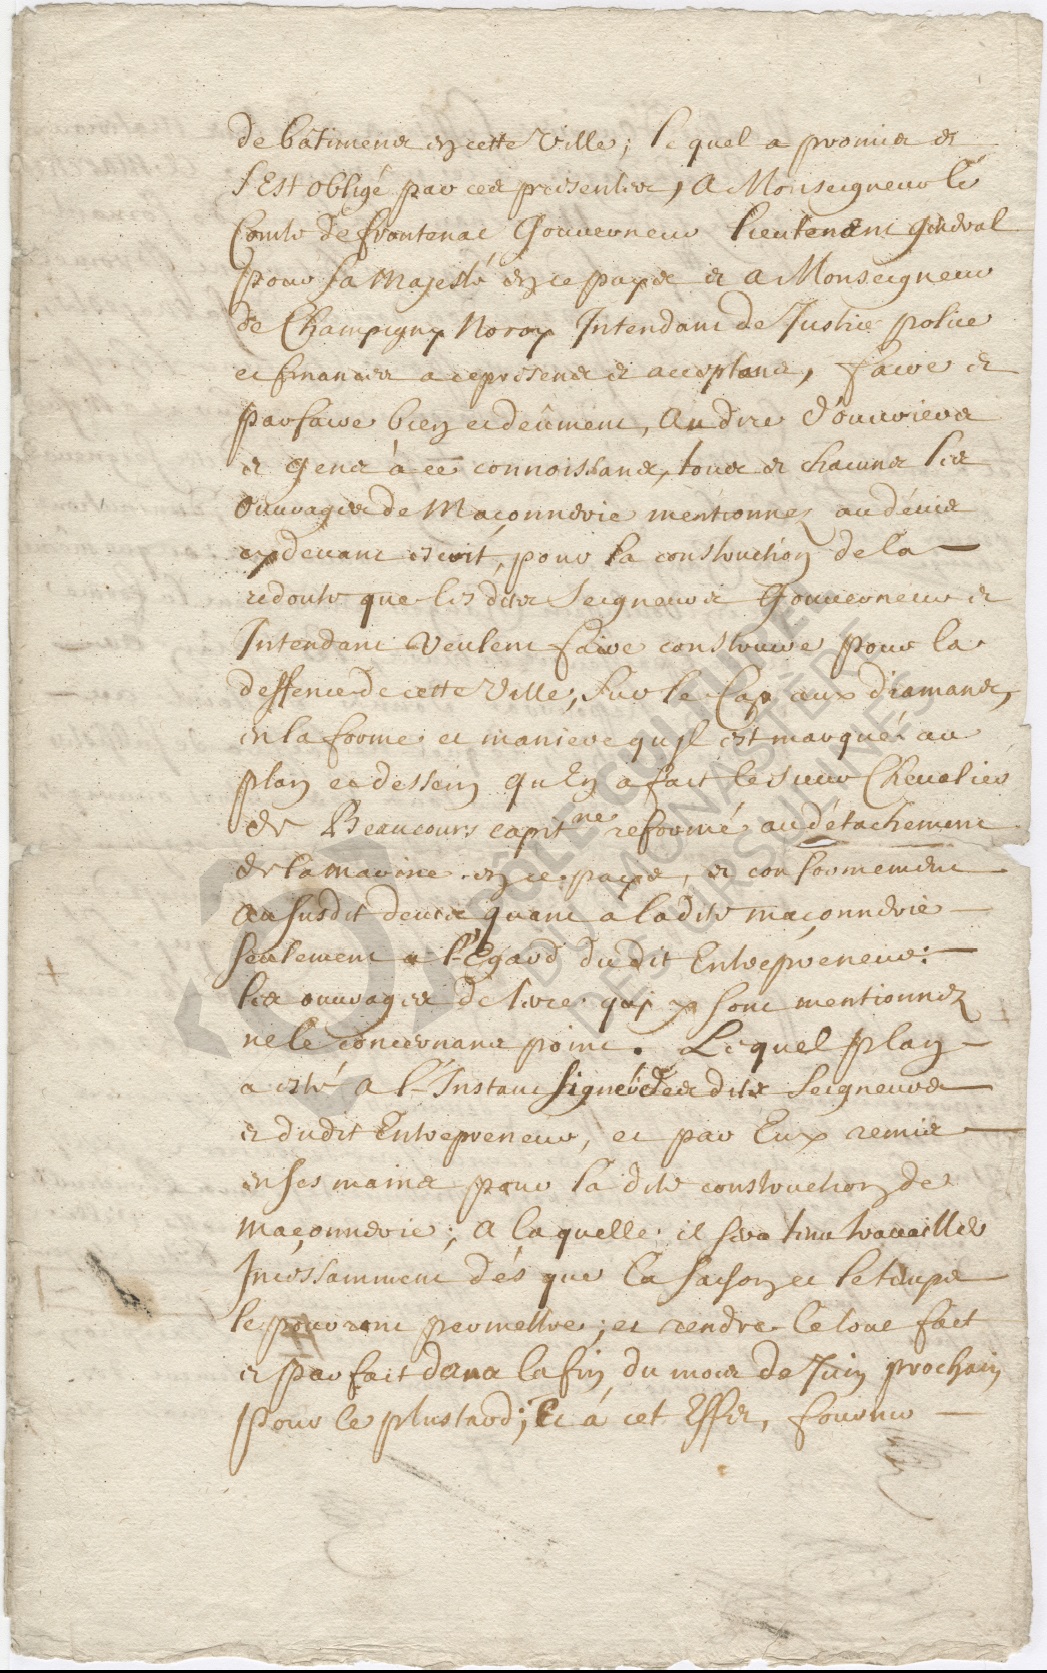 de bâtimens en cette Ville; lequel a promis et
s'Est obligé par ces presentes, A Monseigneur le
Comte de frontenac Gouverneur lieutenant general
pour sa Majesté en ce pays et a Monseigneur
de Champigny Noroy Intendant de Justice police
et finances a ce presens et acceptans, faire et
parfaire bien et deüment, Au dire d'ouvriers
et gens à ce connoissans, tous et chacuns les
Ouvrages de Maçonnerie mentionnez au dévis
cy devant escrit, pour la construction de la
redoute que lesdits Seigneurs Gouverneur et
Intendant veulent faire construire pour la
deffence de cette Ville, sur le Cap aux diamans,
en la forme et maniere qu'jl est marqué au
plan et dessein qu'En a fait le sieur Chevalier
de Beaucours capitne reformé au détachement
de la marine en ce pays, et conformement
Au susdit devis quant a ladite maçonnerie
seulement a l'Egard dudit Entrepreneur:
les ouvrages de terre quj y sont mentionnez
ne le concernans point. Lequel plan
a esté a l'Instant signé desdits Seigneurs
et dudit Entrepreneur, et par Eux remis
en ses mains pour la dite construction de
maçonnerie; A laquelle il sera tenu travailler
Incessamment dés que la saison et le temps
le pouront permettre; et rendre le tout fait
et parfait dans la fin du mois de Juin prochain
pour le plus tard; Et à cet Effet, fournir
PÔLE CULTUREL
DU MONASTÈRE
DES URSULINES